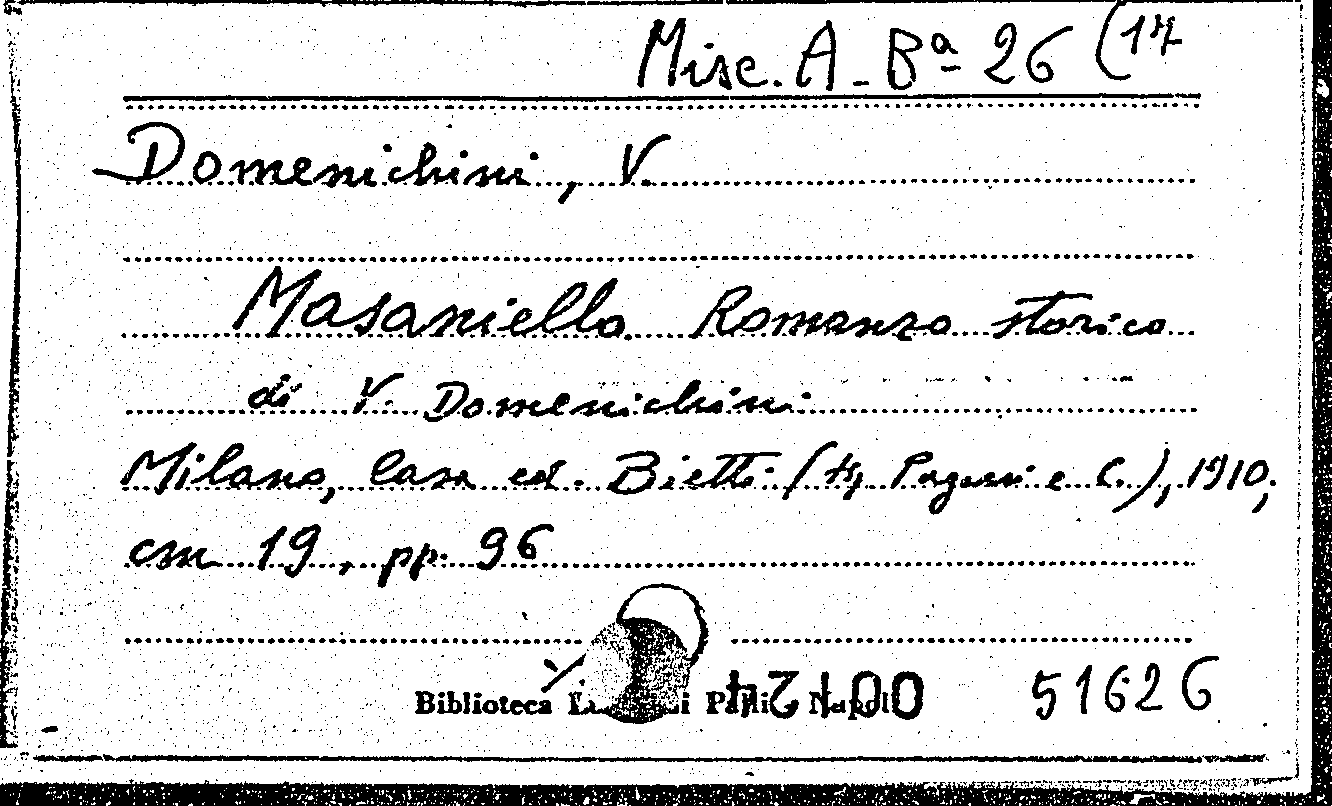 Misc. A - Bª 26 (14
Domenichini, V.
Masaniello. Romanzo storico
di V. Domenichini
Milano, Casa ed. Bietti (tip. e C.), 1910;
cm 19, pp. 96
Biblioteca
51626